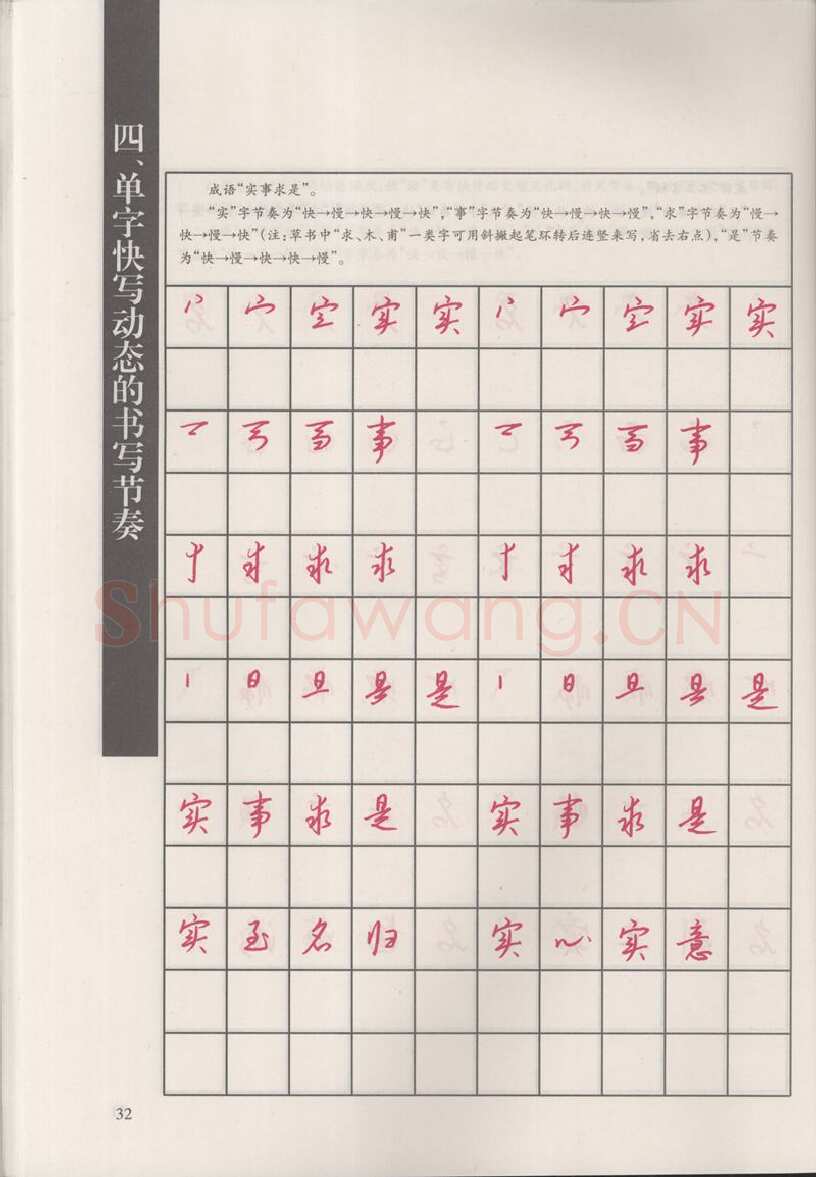 四、单字快写动态的书写节奏
成语“实事求是”。
“实”字节奏为“快→慢→快→慢→快”,“事”字节奏为“快→慢→快→慢”,“求”字节奏为“慢→
快→慢→快”(注:草书中“求、木、甫”一类字可用斜撇起笔环转后连竖来写,省去右点),“是”节奏
为“快→慢→快→快→慢”。
实 实 实
事 事
求 求 求 求
日 旦 是 日 旦 是
实 事 求 是 实 事 求 是
实 至 名 归 实 心 实 意
Shufawang.CN
32